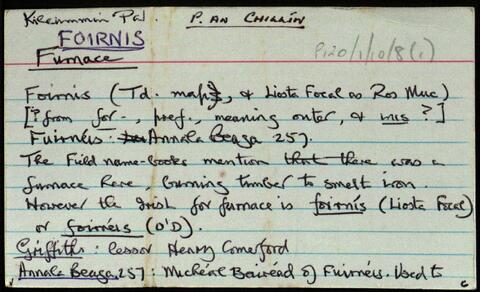 Kilcummin Par. P. AN CHILLÍN
FOIRNIS P120/1/10/8(1)
Furnace
Foirnis (T.d. maps, & Liosta Focal as Ros Muc)
[? from for-, pref., meaning outer, & inis ?]
Fuirnéis: Annála Beaga 257.
The Field name-books mention that there was a
furnace here, burning timber to smelt iron.
However the Irish for furnace is foirnís (Liosta Focal)
or foirnéis (O'D)
Griffiths: lessor Henry Comerford
Annála Beaga, 257: Micheál Bairéad of Fuirnéis. Used to